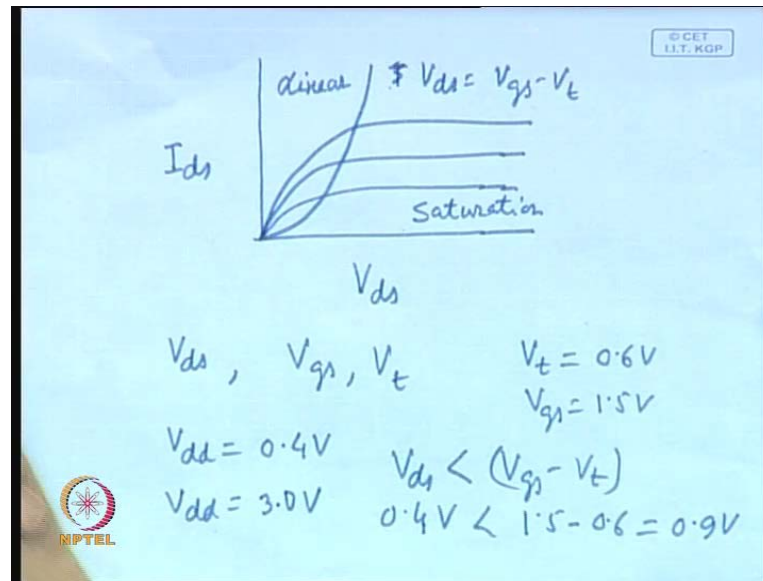 © CET
I.I.T. KGP
Linear
Vds = Vgs - Vt
Ids
Saturation
Vds
Vds , Vgs, Vt
Vt = 0.6V
Vgs = 1.5V
Vdd = 0.4V
Vds < (Vgs - Vt)
Vdd = 3.0V
0.4V < 1.5 - 0.6 = 0.9V
NPTEL